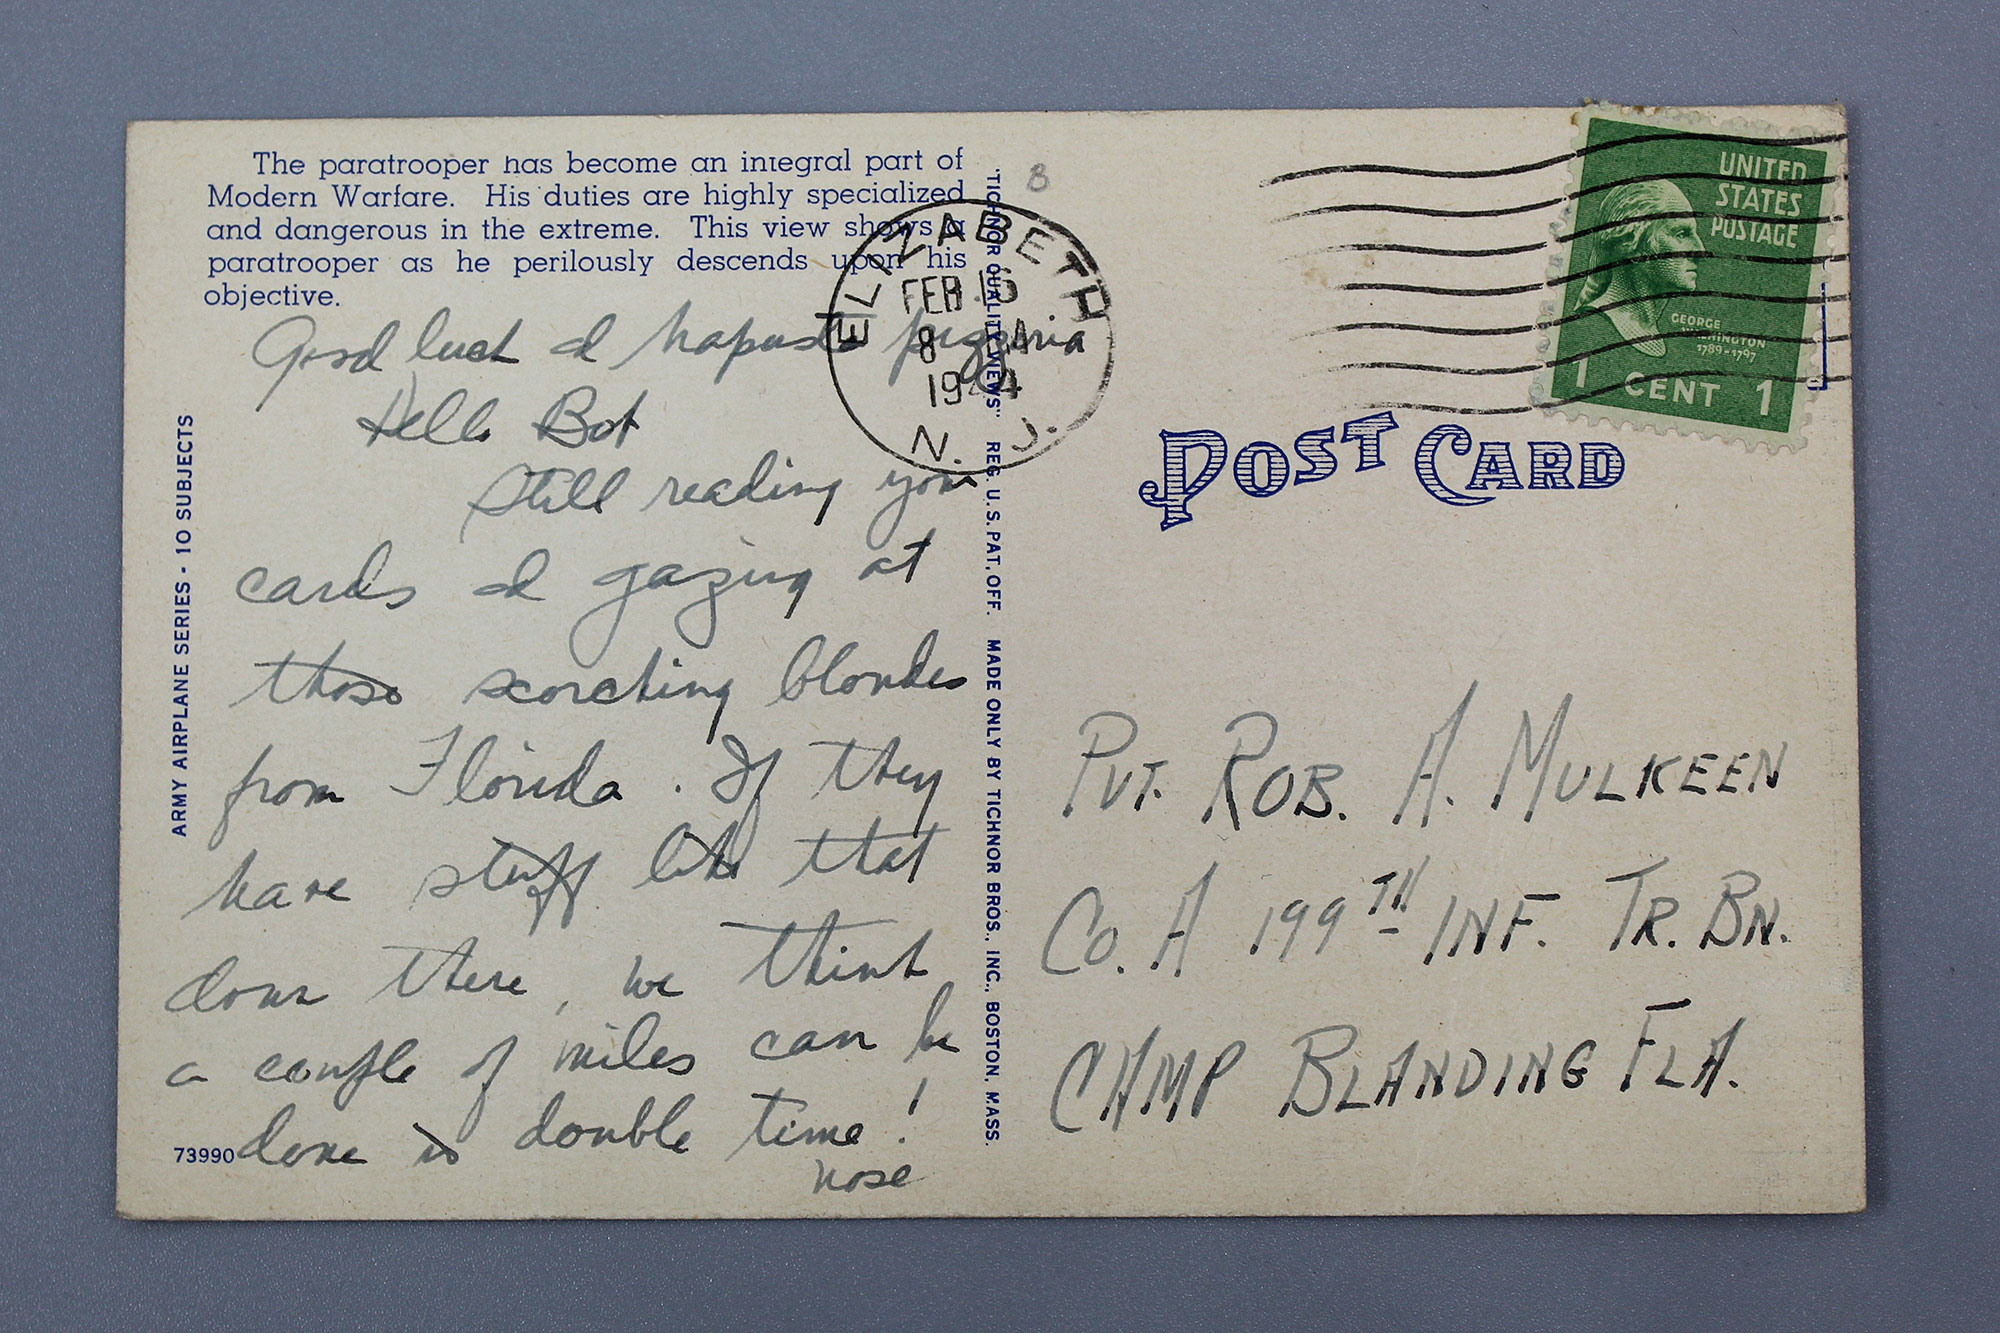 The paratrooper has become an integral part of
Modern Warfare. His duties are highly specialized
and dangerous in the extreme. This view shows a
paratrooper as he perilously descends upon his
objective.
Good luck &
Hello Bob
Still reading your
cards & gazing at
those scorching blondes
from Florida. If they
have stuff like that
down there, we think
a couple of miles can be
done in double time!
ARMY AIRPLANE SERIES - 10 SUBJECTS
73990
"TICHNOR QUALITY VIEWS" REG. U. S. PAT. OFF. MADE ONLY BY TICHNOR BROS., INC., BOSTON, MASS.
8
ELIZABETH
FEB 15
8
1944
N. J.
UNITED
STATES
POSTAGE
GEORGE
WASHINGTON
1789-1797
1 CENT 1
POST CARD
PVT. ROB. A. MULKEEN
CO. A 199TH INF. TR. BN.
CAMP BLANDING FLA.